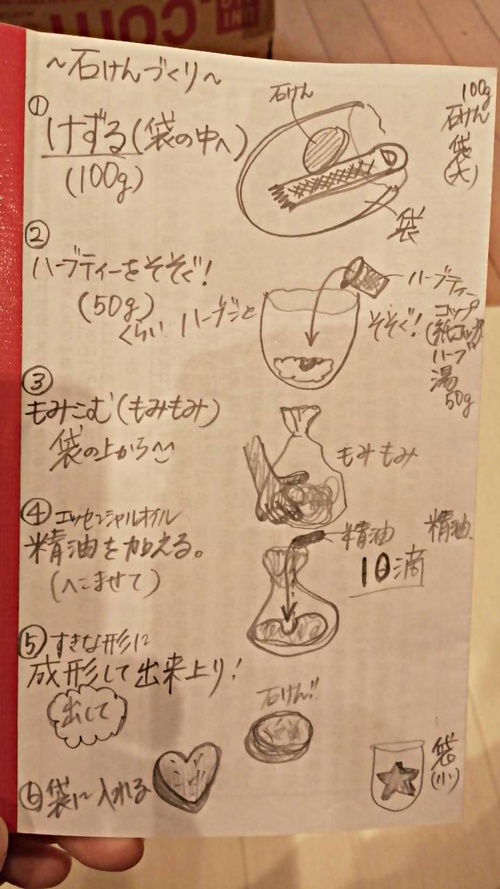 ～石けんづくり～
①
けずる(袋の中へ)
(100g)
石けん
袋
100g
石けん
袋
(大)
②
ハーブティーをそそぐ!
(50g)
くらい ハーブごと
ハーブティー
そそぐ!
コップ
(紙コップ)
ハーブ
湯
50g
③
もみこむ(もみもみ)
袋の上から
もみもみ
④ エッセンシャルオイル
精油を加える。
(へこませて)
精油
10滴
精油
⑤ すきな形に
成形して出来上り!
出して
石けん!!
⑥袋に入れる
袋
(小)
.com